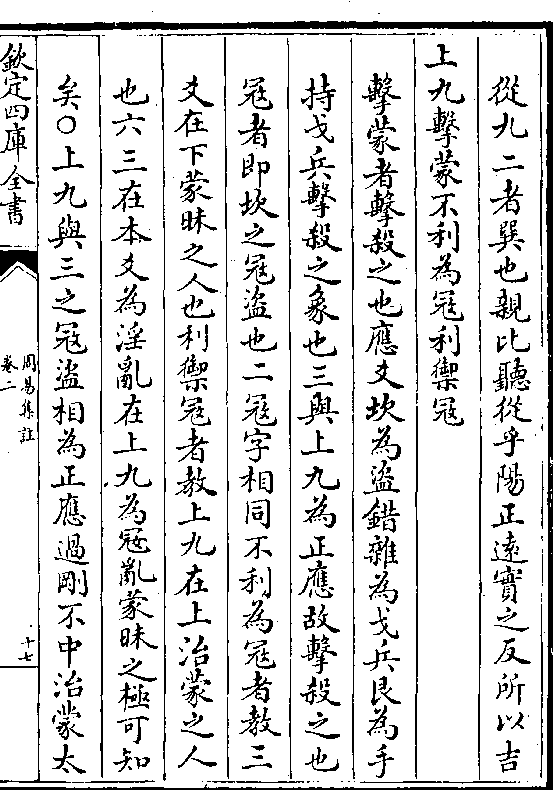 從九二者巽也親比聽從乎陽正遠實之反所以吉
上九擊蒙不利為冦利禦冦
擊蒙者擊殺之也應爻坎為盜錯雜為戈兵艮為手
持戈兵擊殺之象也三與上九為正應故擊殺之也
冦者即坎之冦盜也二冦字相同不利為冦者教三
爻在下蒙昧之人也利禦冦者教上九在上治蒙之人
也六三在本爻為淫亂在上九為冦亂蒙昧之極可知
矣○上九與三之冦盜相為正應過剛不中治蒙太
欽定四庫全書
周易集註
卷二
十七